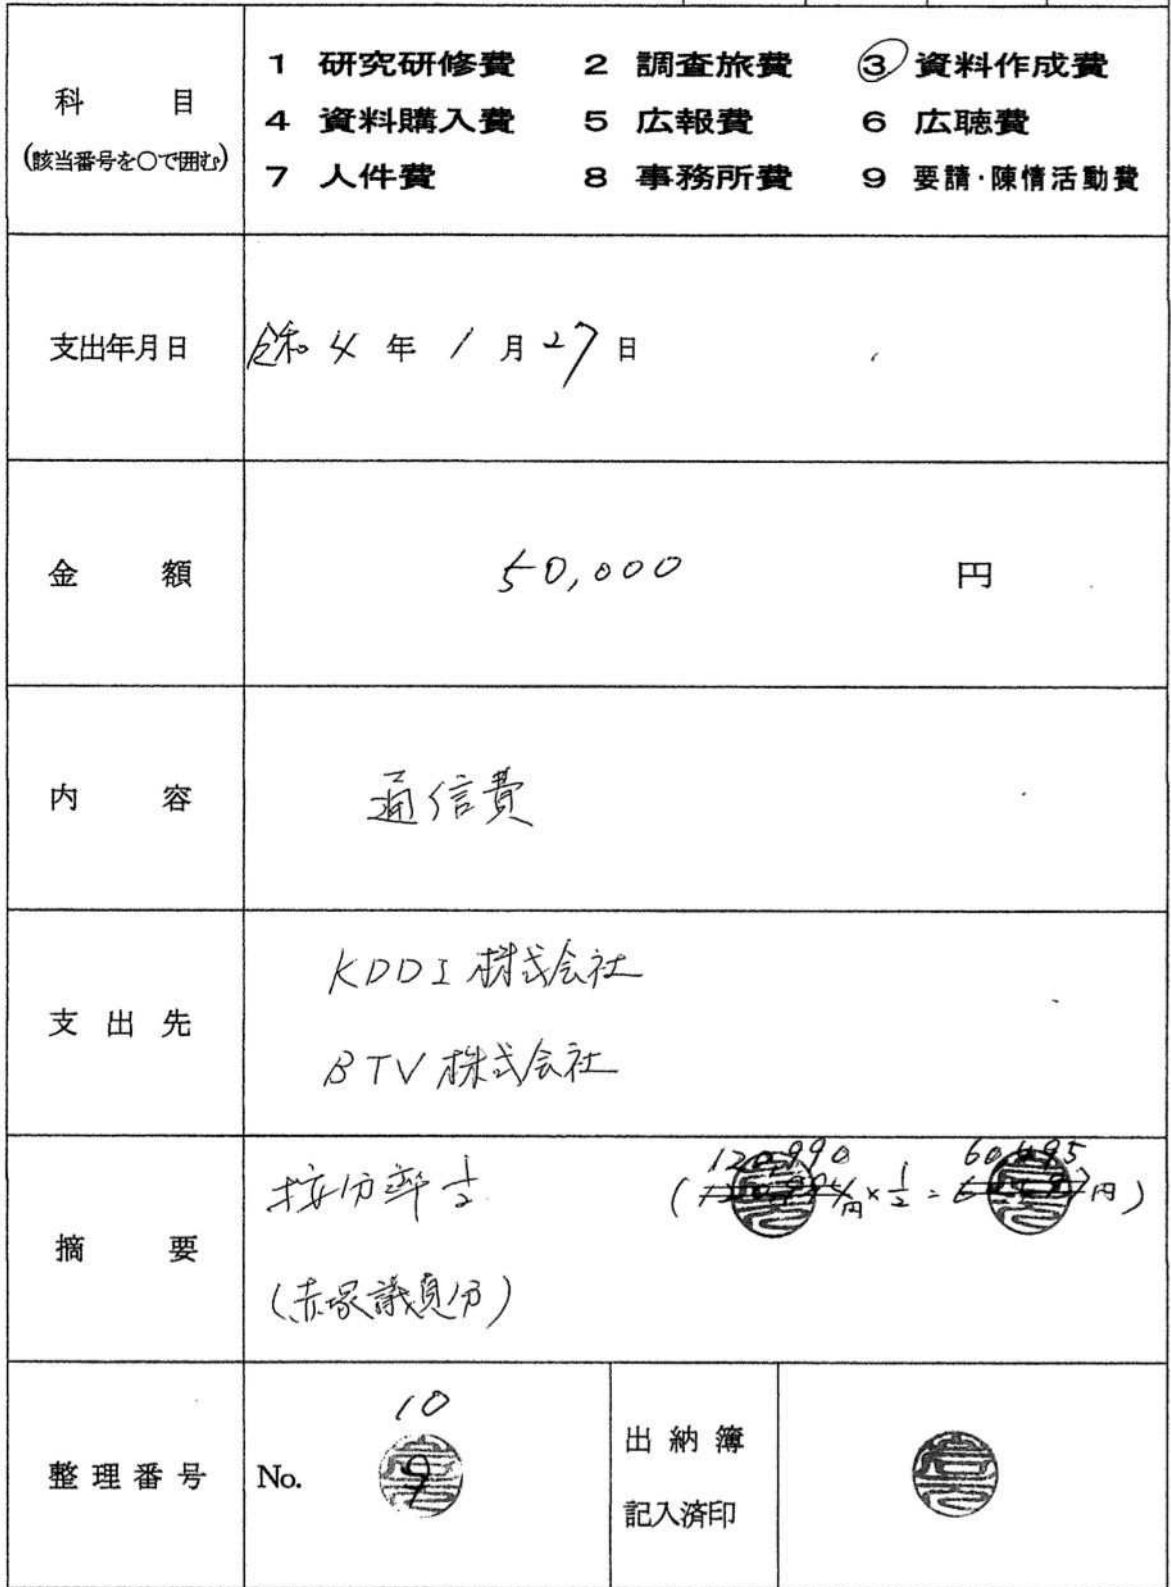 科 目
(該当番号を○で囲む)
1 研究研修費 2 調査旅費 ③ 資料作成費
4 資料購入費 5 広報費 6 広聴費
7 人件費 8 事務所費 9 要請・陳情活動費
支出年月日 令和 4 年 1 月 27 日
金 額 50,000 円
内 容 通信費
支 出 先
KDDI 株式会社
BTV 株式会社
摘 要
120,990 60,495
按分率 1/2 ( 円 × 1/2 = 円 )
(赤塚議員分)
整 理 番 号 No. 10
9
出 納 簿
記入済印